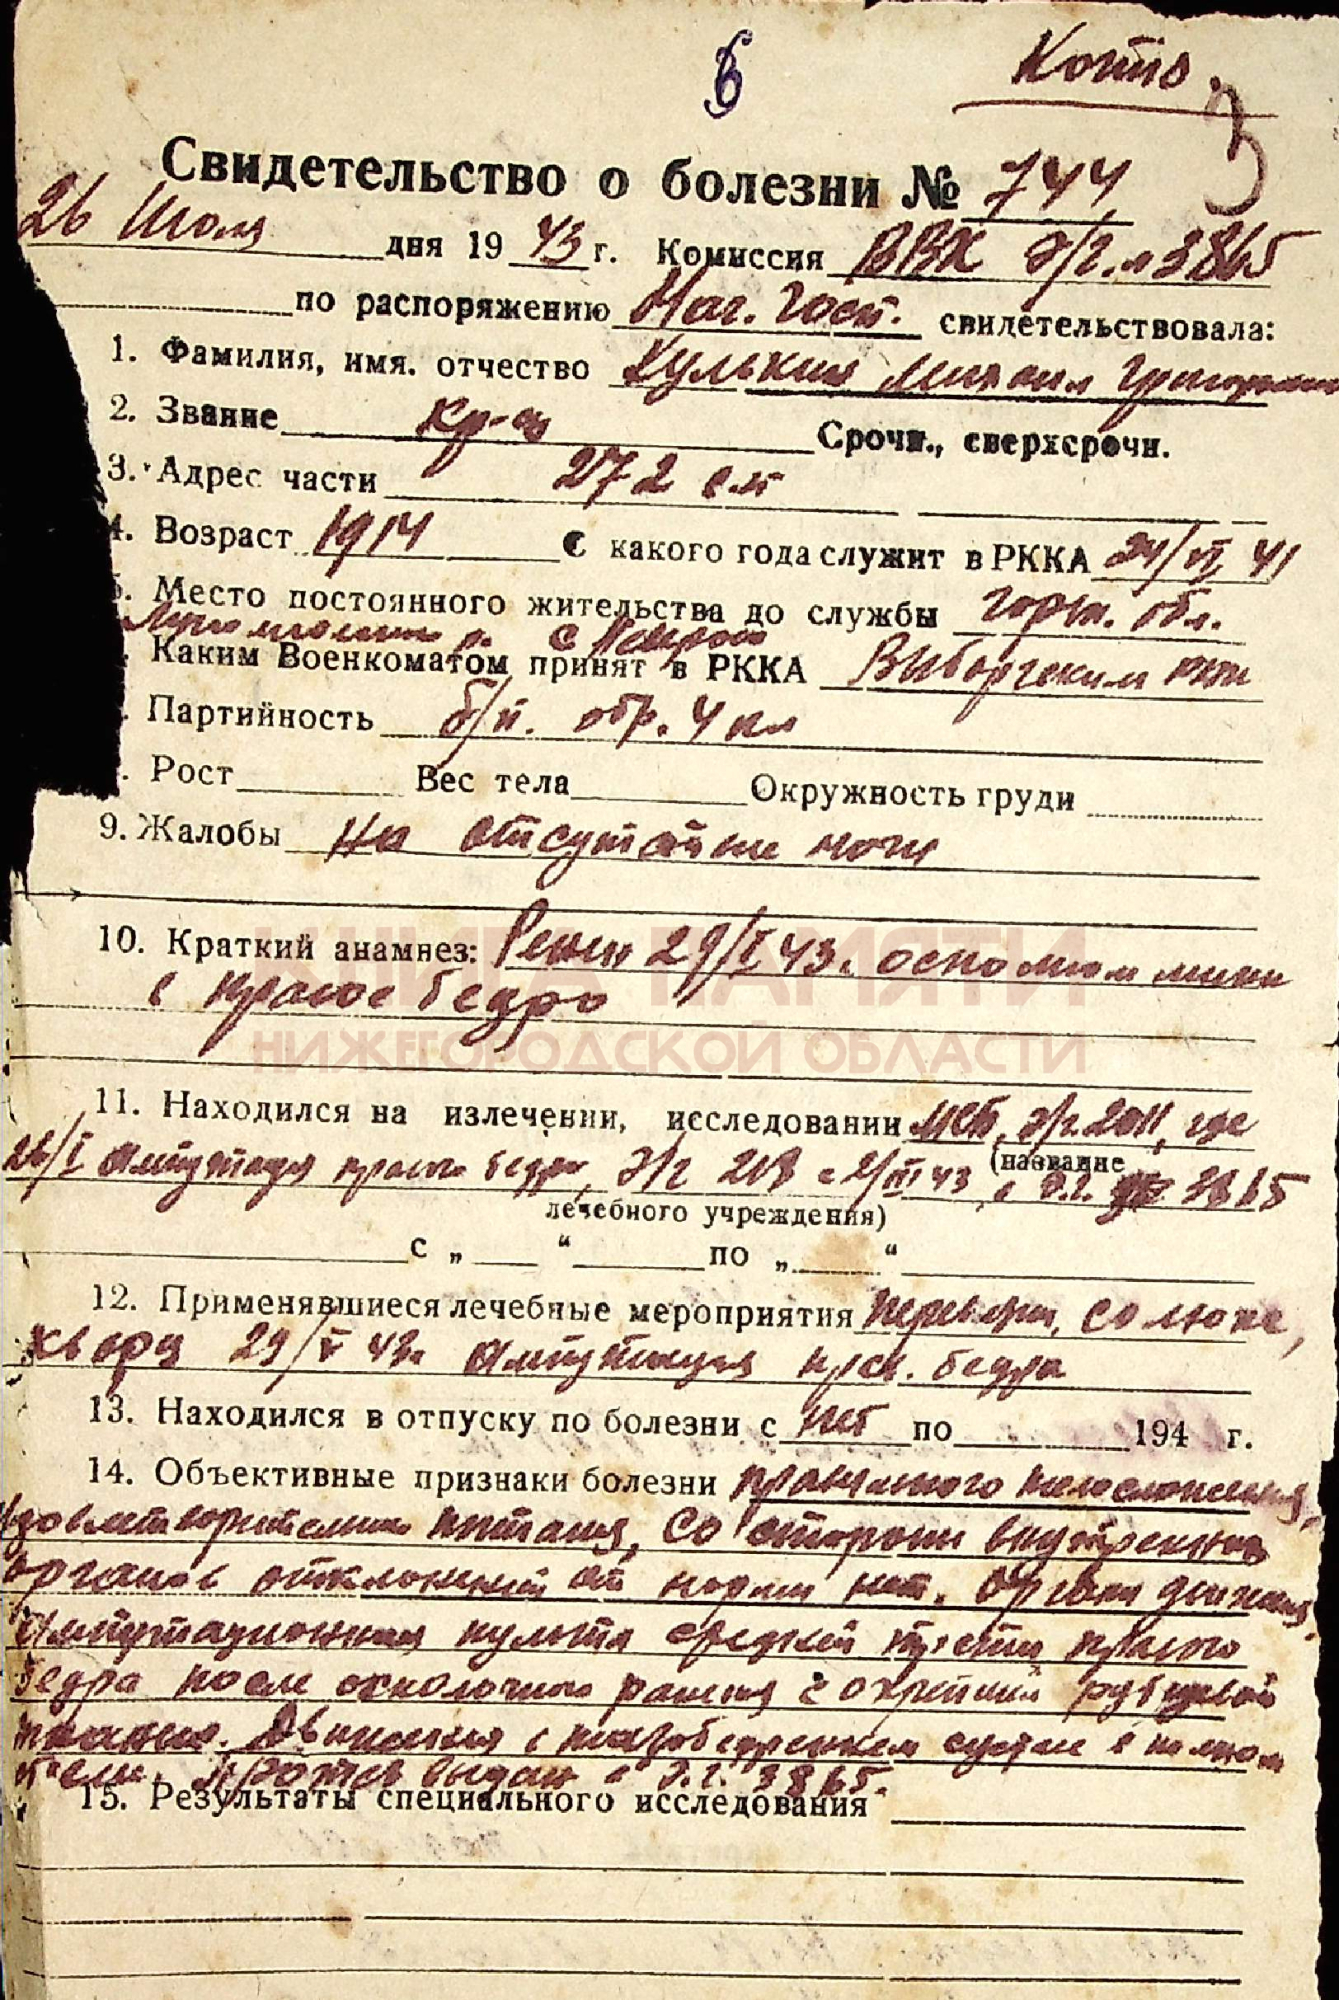 6
Копия.
3
Свидетельство о болезни № 744
26 Июля дня 1943 г. Комиссия ВВК э/г. № 3865
по распоряжению Нач. Госп. свидетельствовала:
1. Фамилия, имя. отчество Кулькин Михаил Григорьевич
2. Звание кр-ц Срочн., сверхсрочн.
3. Адрес части 272 сп
4. Возраст 1914 С какого года служит в РККА 24/VI 41
5. Место постоянного жительства до службы Горьк. обл.
р. с
Каким Военкоматом принят в РККА Выборгским РВК
Партийность б/п. обр. 4 кл
Рост Вес тела Окружность груди
9. Жалобы На отсутствие ноги
10. Краткий анамнез: Ранен 29/I 43 г. осколком мины
в правое бедро
КНИГА ПАМЯТИ
НИЖЕГОРОДСКОЙ ОБЛАСТИ
11. Находился на излечении, исследовании МСБ, э/г. 2011, где
26/I ампутация правого бедра, э/г с 2/III 43, в э.г. 3865
(название
лечебного учреждения)
с „ “ по „ “
12. Применявшиеся лечебные мероприятия перевязки, солюкс,
кварц 29/V 43 г. ампутация прав. бедра
13. Находился в отпуску по болезни с нет по 194 г.
14. Объективные признаки болезни правильного телосложения,
удовлетворительного питания, Со стороны внутренних
органов отклонений от нормы нет. Органы движения.
Ампутационная культя средней трети правого
бедра после осколочного ранения с окрепшей рубцовой
тканью. Движения в тазобедренном суставе в полном
объеме. Протез выдан в э.г. 3865.
15. Результаты специального исследования